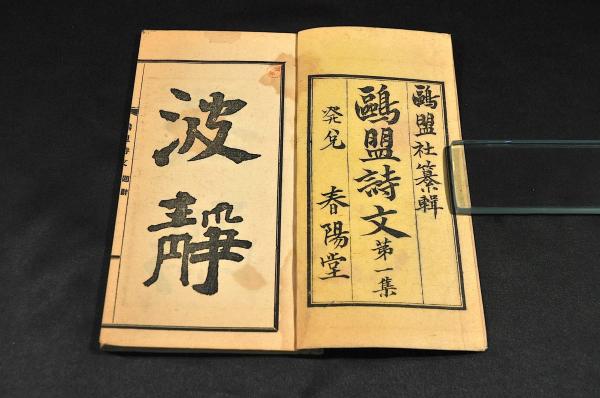 鷗盟社纂輯
鷗盟詩文 第一集
発兌 春陽堂
波
靜